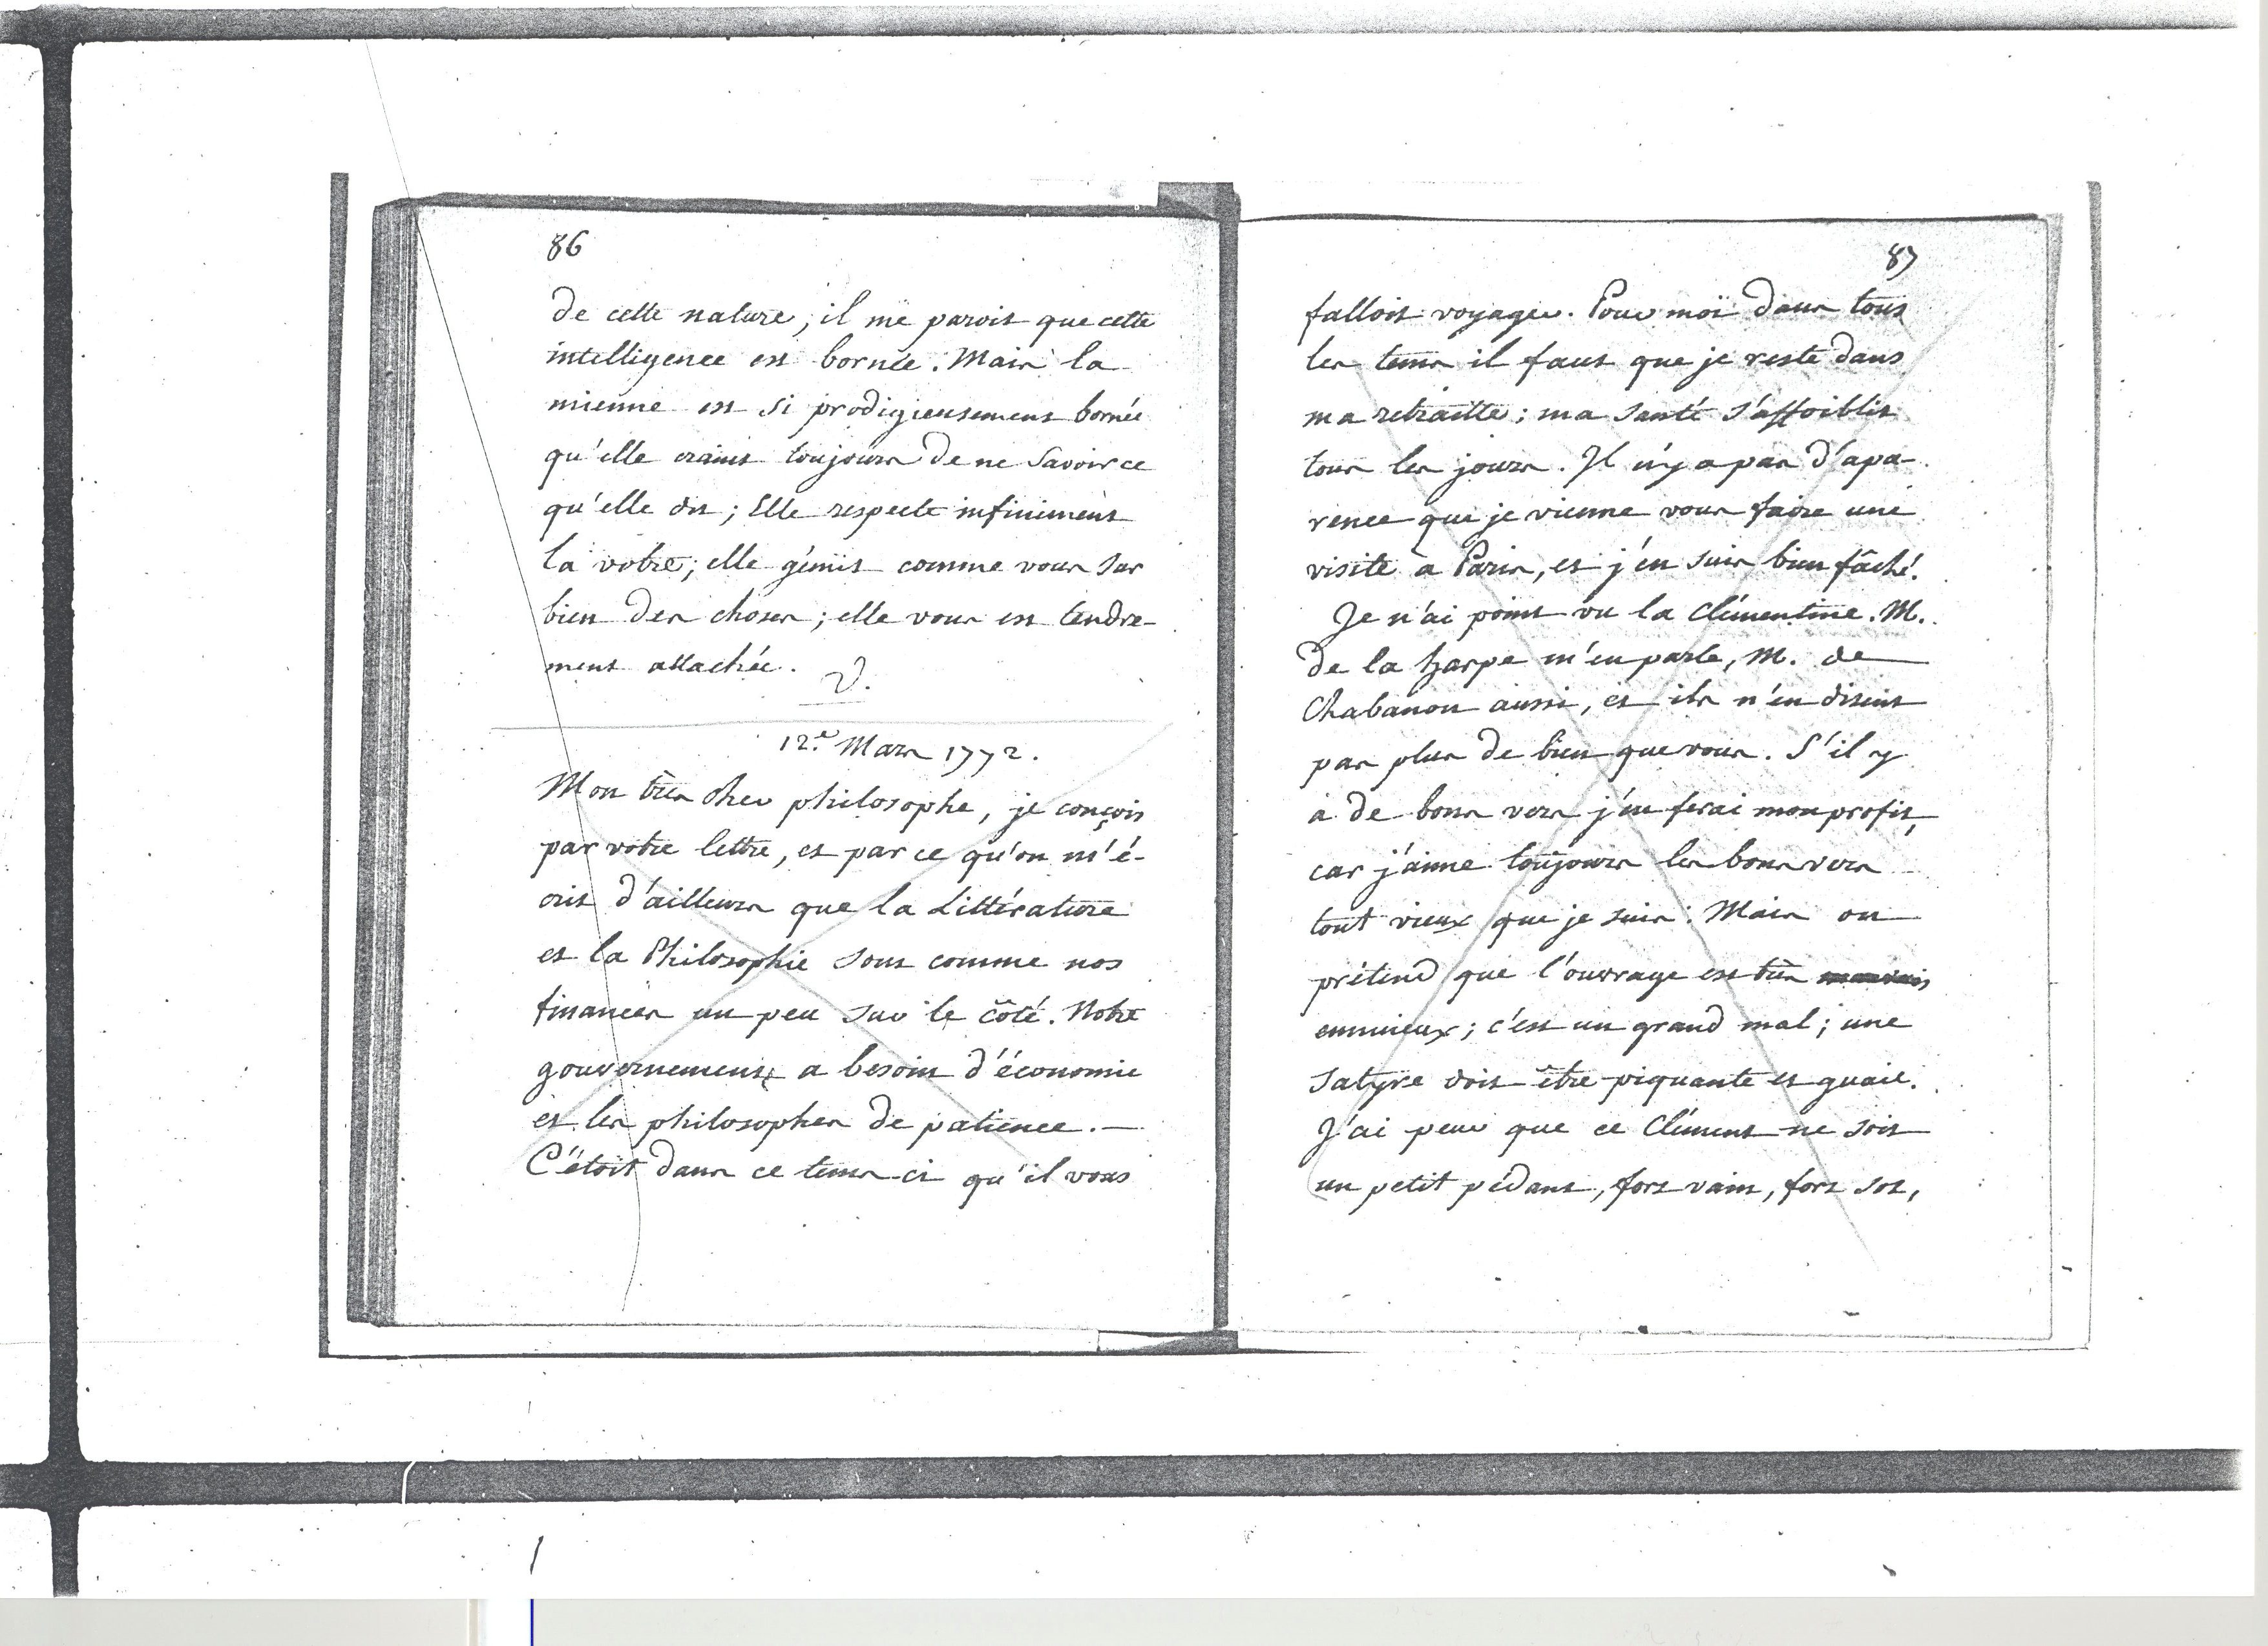 86
de cette nature, il me paroit que cette
intelligence est bornée. Mais la
mienne est si prodigieusement bornée
qu'elle craint toujours de ne savoir ce
qu'elle dit; Elle respecte infiniment
la votre; elle gémit comme vous sur
bien des choses; elle vous est tendre-
ment attachée.
V.
12.e Mars 1772.
Mon très cher philosophe, je conçois
par votre lettre, et par ce qu'on m'é-
crit d'ailleurs que la Littérature
et la Philosophie sont comme nos
finances un peu sur le côté. Notre
gouvernement a besoin d'économie
et les philosophes de patience. —
C'étoit dans ce tems-ci qu'il vous
87
falloit voyager. Pour moi dans tous
les tems il faut que je reste dans
ma retraitte; ma santé s'affoiblit
tous les jours. Il n'y a pas d'apa-
rence que je vienne vous faire une
visite à Paris, et j'en suis bien fâché.
Je n'ai point vu la Clémentine. M.
de la harpe m'en parle, M. de
Chabanon aussi, et ils n'en disent
pas plus de bien que vous. S'il y
a de bons vers j'en ferai mon profit,
car j'aime toujours les bons vers
tout vieux que je suis. Mais on
prétend que l'ouvrage est très mauvais
ennuieux; c'est un grand mal; une
satyre doit être piquante et guaie.
J'ai peur que ce Clément ne soit
un petit pédant, fort vain, fort sot,